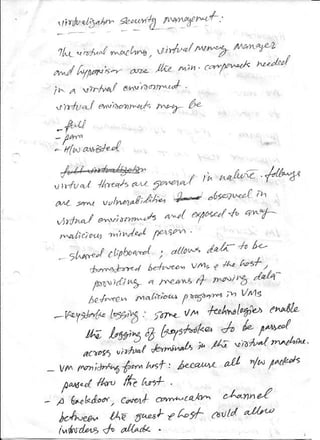 virtualization security management:
The virtual machine, virtual memory manager
and hypervisor are the min. components needed
in a virtual environment.
virtual environments may be
- full
- para
- H/w assisted
full virtualization
virtual threats are general in nature. follows
are some vulnerabilities observed in
virtual environments and exposed to any
malicious minded person.
- shared clipboard; allows data to be
transferred between VMs & the host
providing a means of moving data
between malicious programs in VMs
- Keystroke logging: some VM technologies enable
the logging of keystrokes to be passed
across virtual terminals in the virtual machine.
- VM monitoring from host: because all n/w packets
passed thru the host.
- A backdoor, covert communication channel
between the guest & host could allow
intruders to attack.